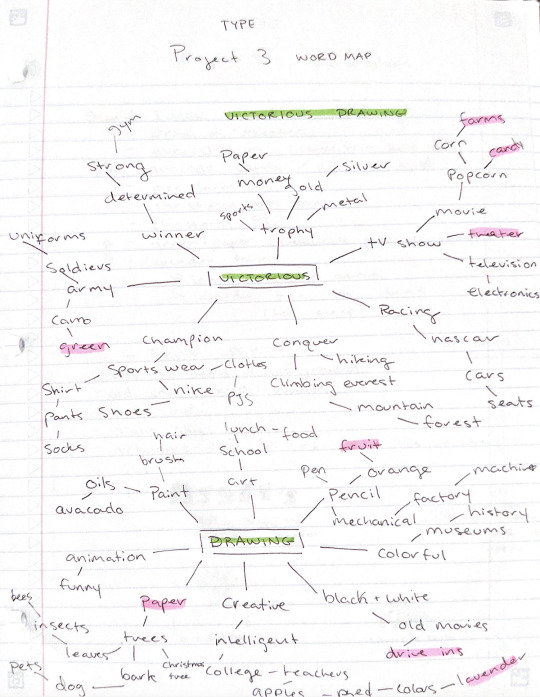 TYPE
Project 3 WORD MAP
VICTORIOUS DRAWING
gym
farms
Strong
Paper
Silver
corn
candy
determined
money
gold
Popcorn
sports
metal
movie
uniforms
winner
trophy
tv show
theater
Soldievs
VICTORIOUS
television
army
electronics
Camo
Racing
green
Champion
Conquer
nascar
Sports wear
Clothes
hiking
Shirt
nike
Climbing everest
cars
pants
Shoes
PJS
mountain
seats
Socks
hair
lunch - food
forest
brush
School
fruit
oils
Paint
art
Pen
orange
machine
avacado
Pencil
factory
mechanical
history
museums
DRAWING
animation
Colorful
funny
bees
Paper
Creative
black + white
insects
trees
intelligent
old movies
leaves
drive ins
pets
dog
bark
Christmas tree
College - teachers
apples - red - colors - lavender